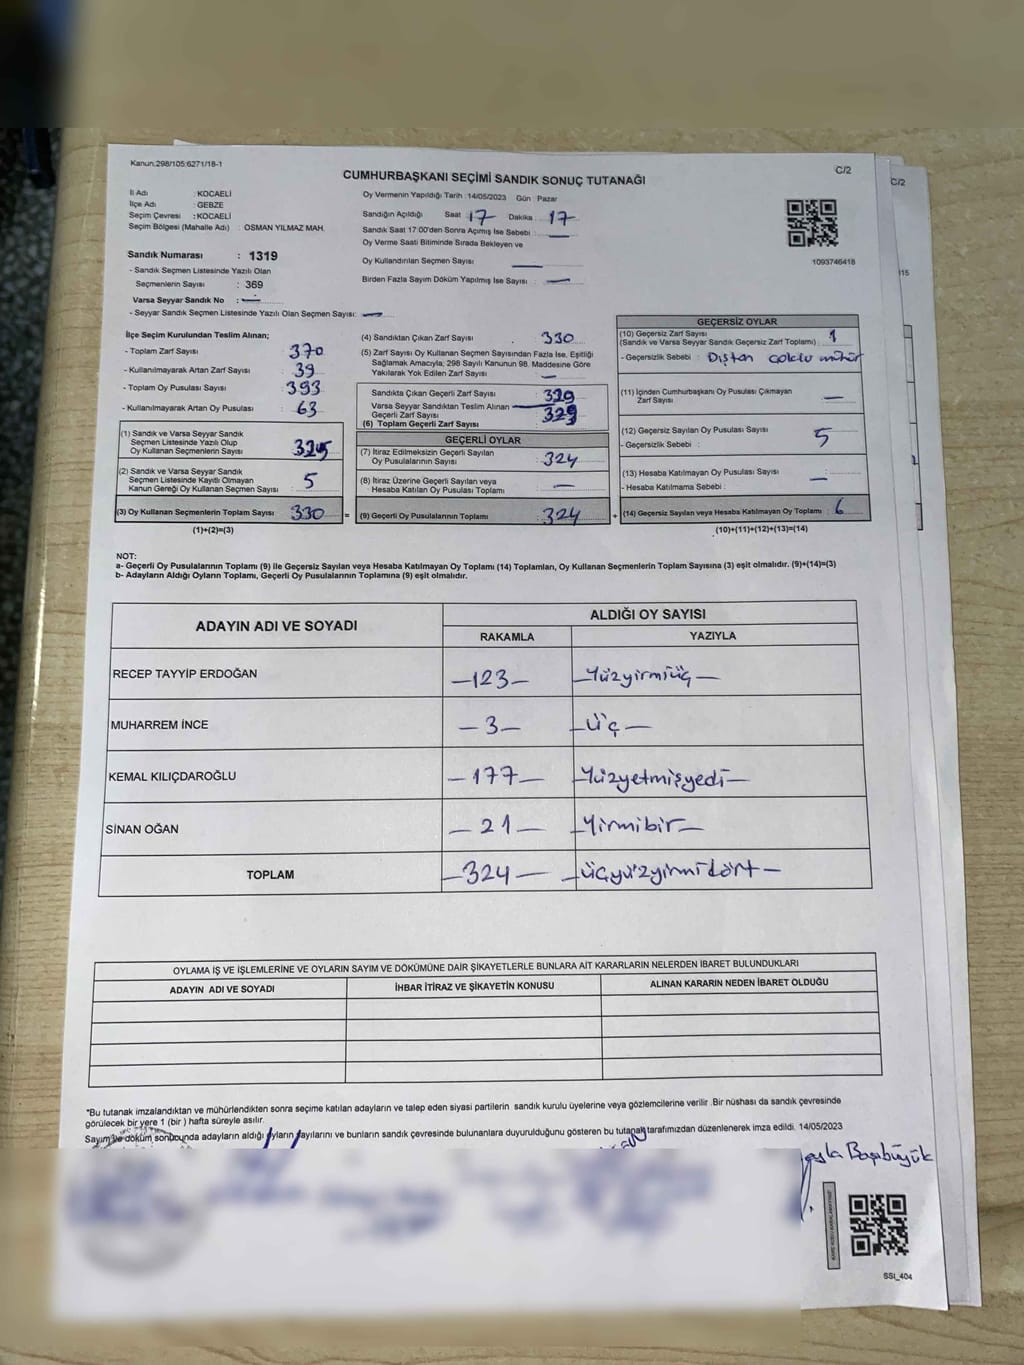 Kanun.298/105:6271/18-1
C/2
C/2
CUMHURBAŞKANI SEÇİMİ SANDIK SONUÇ TUTANAĞI
İl Adı : KOCAELİ
İlçe Adı : GEBZE
Seçim Çevresi : KOCAELİ
Seçim Bölgesi (Mahalle Adı) : OSMAN YILMAZ MAH.
Sandık Numarası : 1319
- Sandık Seçmen Listesinde Yazılı Olan
Seçmenlerin Sayısı : 369
Varsa Seyyar Sandık No : —
- Seyyar Sandık Seçmen Listesinde Yazılı Olan Seçmen Sayısı: —
Oy Vermenin Yapıldığı Tarih : 14/05/2023 Gün : Pazar
Sandığın Açıldığı Saat : 17 Dakika : 17
Sandık Saat 17:00'den Sonra Açımış İse Sebebi : —
Oy Verme Saati Bitiminde Sırada Bekleyen ve
Oy Kullandırılan Seçmen Sayısı : —
Birden Fazla Sayım Döküm Yapılmış İse Sayısı : —
1093746418
İlçe Seçim Kurulundan Teslim Alınan;
- Toplam Zarf Sayısı : 370
- Kullanılmayarak Artan Zarf Sayısı : 39
- Toplam Oy Pusulası Sayısı : 393
- Kullanılmayarak Artan Oy Pusulası : 63
(1) Sandık ve Varsa Seyyar Sandık
Seçmen Listesinde Yazılı Olup
Oy Kullanan Seçmenlerin Sayısı : 325
(2) Sandık ve Varsa Seyyar Sandık
Seçmen Listesinde Kayıtlı Olmayan
Kanun Gereği Oy Kullanan Seçmen Sayısı : 5
(3) Oy Kullanan Seçmenlerin Toplam Sayısı : 330 =
(1)+(2)=(3)
(4) Sandıktan Çıkan Zarf Sayısı : 330
(5) Zarf Sayısı Oy Kullanan Seçmen Sayısından Fazla İse, Eşitliği
Sağlamak Amacıyla; 298 Sayılı Kanunun 98. Maddesine Göre
Yakılarak Yok Edilen Zarf Sayısı : —
Sandıkta Çıkan Geçerli Zarf Sayısı : 329
Varsa Seyyar Sandıktan Teslim Alınan
Geçerli Zarf Sayısı : —
(6) Toplam Geçerli Zarf Sayısı : 329
GEÇERLİ OYLAR
(7) İtiraz Edilmeksizin Geçerli Sayılan
Oy Pusulalarının Sayısı : 324
(8) İtiraz Üzerine Geçerli Sayılan veya
Hesaba Katılan Oy Pusulası Toplamı : —
(9) Geçerli Oy Pusulalarının Toplamı : 324 +
GEÇERSİZ OYLAR
(10) Geçersiz Zarf Sayısı : 1
(Sandık ve Varsa Seyyar Sandık Geçersiz Zarf Toplamı)
- Geçersizlik Sebebi : Dıştan çoklu mühür
(11) İçinden Cumhurbaşkanı Oy Pusulası Çıkmayan
Zarf Sayısı : —
(12) Geçersiz Sayılan Oy Pusulası Sayısı : 5
- Geçersizlik Sebebi :
(13) Hesaba Katılmayan Oy Pusulası Sayısı : —
- Hesaba Katılmama Sebebi :
(14) Geçersiz Sayılan veya Hesaba Katılmayan Oy Toplamı : 6
(10)+(11)+(12)+(13)=(14)
NOT:
a- Geçerli Oy Pusulalarının Toplamı (9) ile Geçersiz Sayılan veya Hesaba Katılmayan Oy Toplamı (14) Toplamları, Oy Kullanan Seçmenlerin Toplam Sayısına (3) eşit olmalıdır. (9)+(14)=(3)
b- Adayların Aldığı Oyların Toplamı, Geçerli Oy Pusulalarının Toplamına (9) eşit olmalıdır.
ADAYIN ADI VE SOYADI
ALDIĞI OY SAYISI
RAKAMLA YAZIYLA
RECEP TAYYİP ERDOĞAN —123— —Yüzyirmiüç—
MUHARREM İNCE —3— —Üç—
KEMAL KILIÇDAROĞLU —177— —Yüzyetmişyedi—
SİNAN OĞAN —21— —Yirmibir—
TOPLAM —324— —Üçyüzyirmidört—
OYLAMA İŞ VE İŞLEMLERİNE VE OYLARIN SAYIM VE DÖKÜMÜNE DAİR ŞİKAYETLERLE BUNLARA AİT KARARLARIN NELERDEN İBARET BULUNDUKLARI
ADAYIN ADI VE SOYADI İHBAR İTİRAZ VE ŞİKAYETİN KONUSU ALINAN KARARIN NEDEN İBARET OLDUĞU
*Bu tutanak imzalandıktan ve mühürlendikten sonra seçime katılan adayların ve talep eden siyasi partilerin sandık kurulu üyelerine veya gözlemcilerine verilir .Bir nüshası da sandık çevresinde
görülecek bir yere 1 (bir ) hafta süreyle asılır.
Sayım ve döküm sonucunda adayların aldığı oyların sayılarını ve bunların sandık çevresinde bulunanlara duyurulduğunu gösteren bu tutanak tarafımızdan düzenlenerek imza edildi. 14/05/2023
Başıbüyük
SSI_404